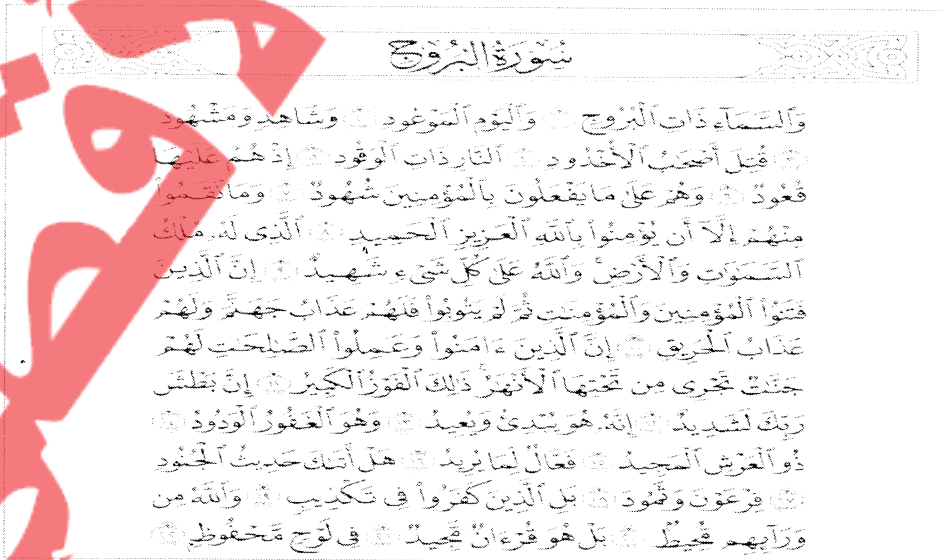 سُورَةُ البُرُوجِ
وَٱلسَّمَآءِ ذَاتِ ٱلْبُرُوجِ وَٱلْيَوْمِ ٱلْمَوْعُودِ وَشَاهِدٍ وَمَشْهُودٍ
قُتِلَ أَصْحَٰبُ ٱلْأُخْدُودِ ٱلنَّارِ ذَاتِ ٱلْوَقُودِ إِذْ هُمْ عَلَيْهَا
قُعُودٌ وَهُمْ عَلَىٰ مَا يَفْعَلُونَ بِٱلْمُؤْمِنِينَ شُهُودٌ وَمَا نَقَمُوا۟
مِنْهُمْ إِلَّآ أَن يُؤْمِنُوا۟ بِٱللَّهِ ٱلْعَزِيزِ ٱلْحَمِيدِ ٱلَّذِى لَهُۥ مُلْكُ
ٱلسَّمَٰوَٰتِ وَٱلْأَرْضِ وَٱللَّهُ عَلَىٰ كُلِّ شَىْءٍ شَهِيدٌ إِنَّ ٱلَّذِينَ
فَتَنُوا۟ ٱلْمُؤْمِنِينَ وَٱلْمُؤْمِنَٰتِ ثُمَّ لَمْ يَتُوبُوا۟ فَلَهُمْ عَذَابُ جَهَنَّمَ وَلَهُمْ
عَذَابُ ٱلْحَرِيقِ إِنَّ ٱلَّذِينَ ءَامَنُوا۟ وَعَمِلُوا۟ ٱلصَّٰلِحَٰتِ لَهُمْ
جَنَّٰتٌ تَجْرِى مِن تَحْتِهَا ٱلْأَنْهَٰرُ ذَٰلِكَ ٱلْفَوْزُ ٱلْكَبِيرُ إِنَّ بَطْشَ
رَبِّكَ لَشَدِيدٌ إِنَّهُۥ هُوَ يُبْدِئُ وَيُعِيدُ وَهُوَ ٱلْغَفُورُ ٱلْوَدُودُ
ذُو ٱلْعَرْشِ ٱلْمَجِيدُ فَعَّالٌ لِّمَا يُرِيدُ هَلْ أَتَىٰكَ حَدِيثُ ٱلْجُنُودِ
فِرْعَوْنَ وَثَمُودَ بَلِ ٱلَّذِينَ كَفَرُوا۟ فِى تَكْذِيبٍ وَٱللَّهُ مِن
وَرَآئِهِم مُّحِيطٌ بَلْ هُوَ قُرْءَانٌ مَّجِيدٌ فِى لَوْحٍ مَّحْفُوظٍ